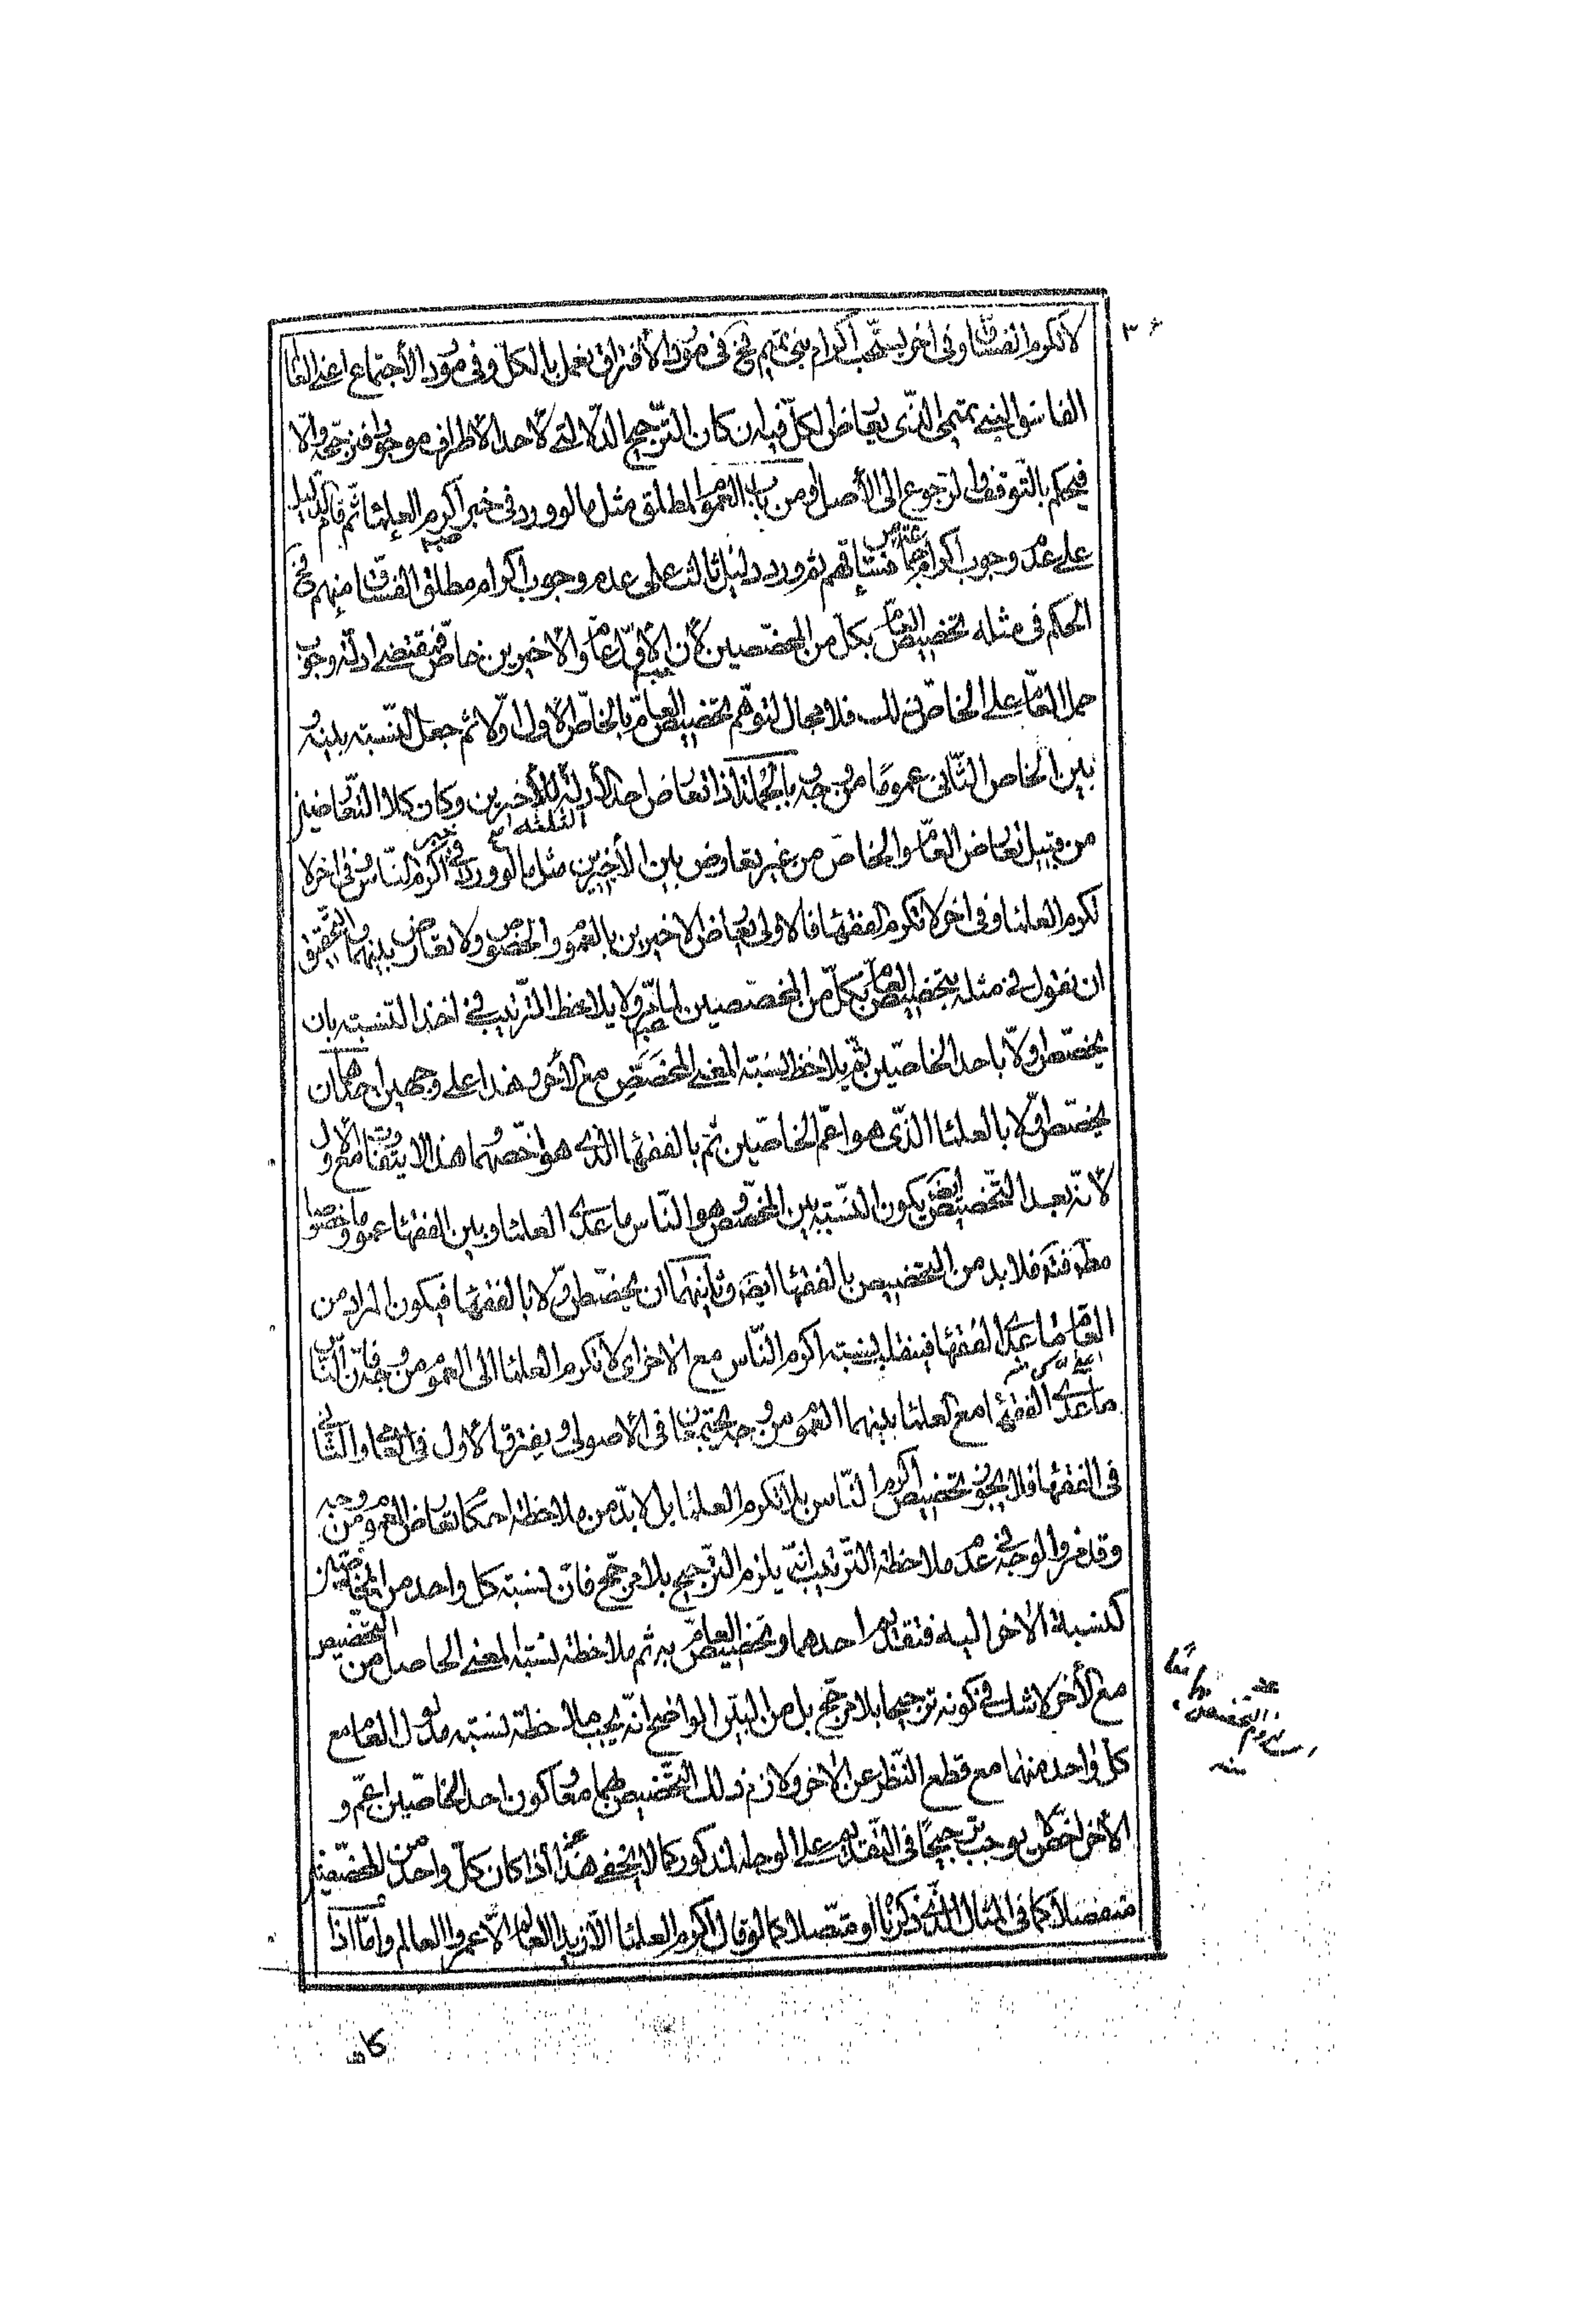 لا تكرم الفساق وفى اخر يستحب اكرام بنى تميم فح فى مورد الأفتراق نعمل بالكل وفى مورد الأجتماع اعنى العالم
الفاسق الغير تميمى الذى يعارض الكل فيه ان كان الترجيح الدلالتى لاحد الاطراف موجودا فنرجحه والا
فيحكم بالتوقف والرجوع الى الأصل ومن باب العموم المطلق مثل ما لو ورد فى خبر اكرم العلماء ثم قام الدليل
على عدم وجوب اكرام فساقهم ثم ورد دليل ثالث على عدم وجوب اكرام مطلق الفساق منهم فح
الحكم فى مثله تخصيص العام بكل من المخصصين لان الاول عام والاخيرين خاص فمقتضى ادلة وجوب
حمل العام على الخاص ذلك فلا مجال لتوهم تخصيص العام بالخاص الاول اولا ثم جعل النسبة بينه و
بين الخاص الثانى عموما من وجه وبالجملة اذا تعارض احد الأدلة الثلثة للأخيرين وكان كلا التعارضين
من قبيل تعارض العام والخاص من غير تعارض بين الأخيرين مثل ما لو ورد فى خبر اكرم الناس وفى اخر لا
تكرم العلماء وفى اخر لا تكرم الفقهاء فالاولى يعارض الاخيرين بالعموم والخصوص ولا تعارض بينهما والتحقيق
ان نقول فى مثله بتخصيص العام بكل من المخصصين لما مر ولا يلاحظ الترتيب فى اخذ النسبة بان
يخصص اولا باحد الخاصين ثم يلاحظ النسبة المعنى المخصص مع الأخر وهذا على وجهين احدهما ان
يخصص اولا بالعلماء الذى هو اعم الخاصين ثم بالفقهاء الذى هو اخصهما وهذا لا يتفاوت مع الاول
لانه بعد التخصيص ايضا يكون النسبة بين المخصص وهو الناس ما عدى العلماء وبين الفقهاء عموما وخصوصا
فلا بد من التخصيص بالفقهاء ايضا وثانيهما ان يخصص اولا بالفقهاء فيكون المراد من
العام ما عدى الفقهاء فينقلب نسبة اكرم الناس مع الاخر اى لا تكرم العلماء الى العموم من وجه فان الناس
ما عدى الفقهاء مع العلماء بينهما العموم من وجه يجتمعان فى الاصولى ويفترق الاول فى العامى والثانى
فى الفقهاء فلا يجوز تخصيص اكرم الناس بلا تكرم العلماء بل لا بد من ملاحظة احكام تعارض العموم من وجه
وقد قرروا الوجه فى عدم ملاحظة الترتيب انه يلزم الترجيح بلا مرجح فان نسبة كل واحد من الخاصين
كنسبة الاخر اليه فتقديم احدهما وتخصيص العام به ثم ملاحظة نسبة المعنى الحاصل من التخصيص
مع الأخر لا شك فى كونه ترجيحا بلا مرجح بل من البين الواضح انه يجب ملاحظة نسبة مدلول العام مع
كل واحد منهما مع قطع النظر عن الاخر ولازم ذلك التخصيص بهما معا وكون احد الخاصين اعم و
الأخر اخص لا يوجب ترجيحا فى التقديم على الوجه المذكور كما لا يخفى هذا اذا كان كل واحد من المخصصين
منفصلا كما فى المثال الذى ذكرنا او متصلا كما لو قال اكرم العلماء الا زيد العالم الا عمروا العالم واما اذا
كان